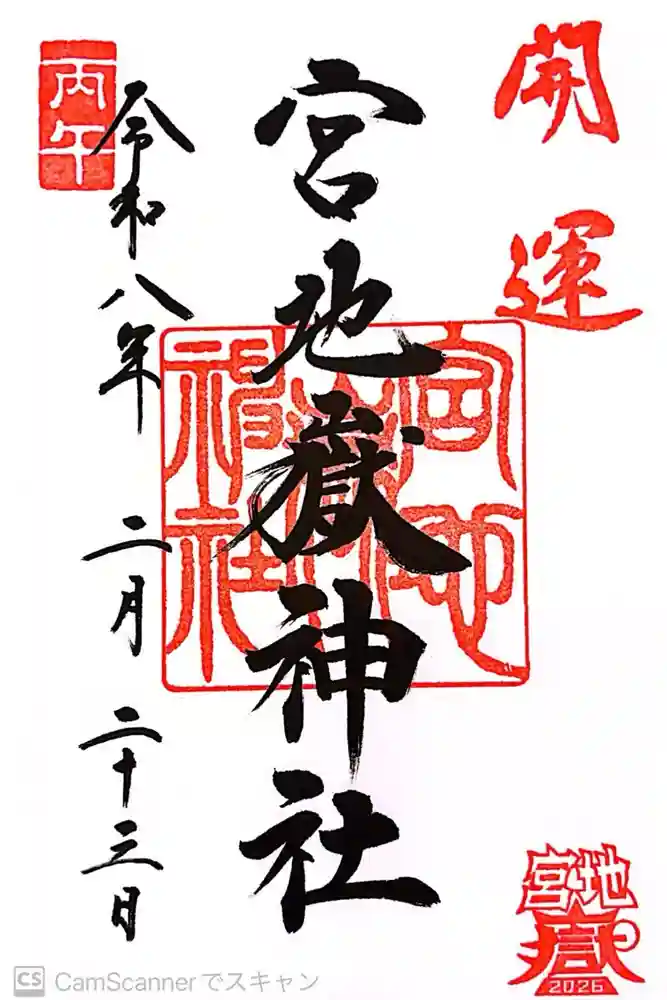 開運
宮地嶽神社
宮地嶽神社
丙午
令和八年 二月 二十三日
宮地嶽
2026
CS CamScannerでスキャン